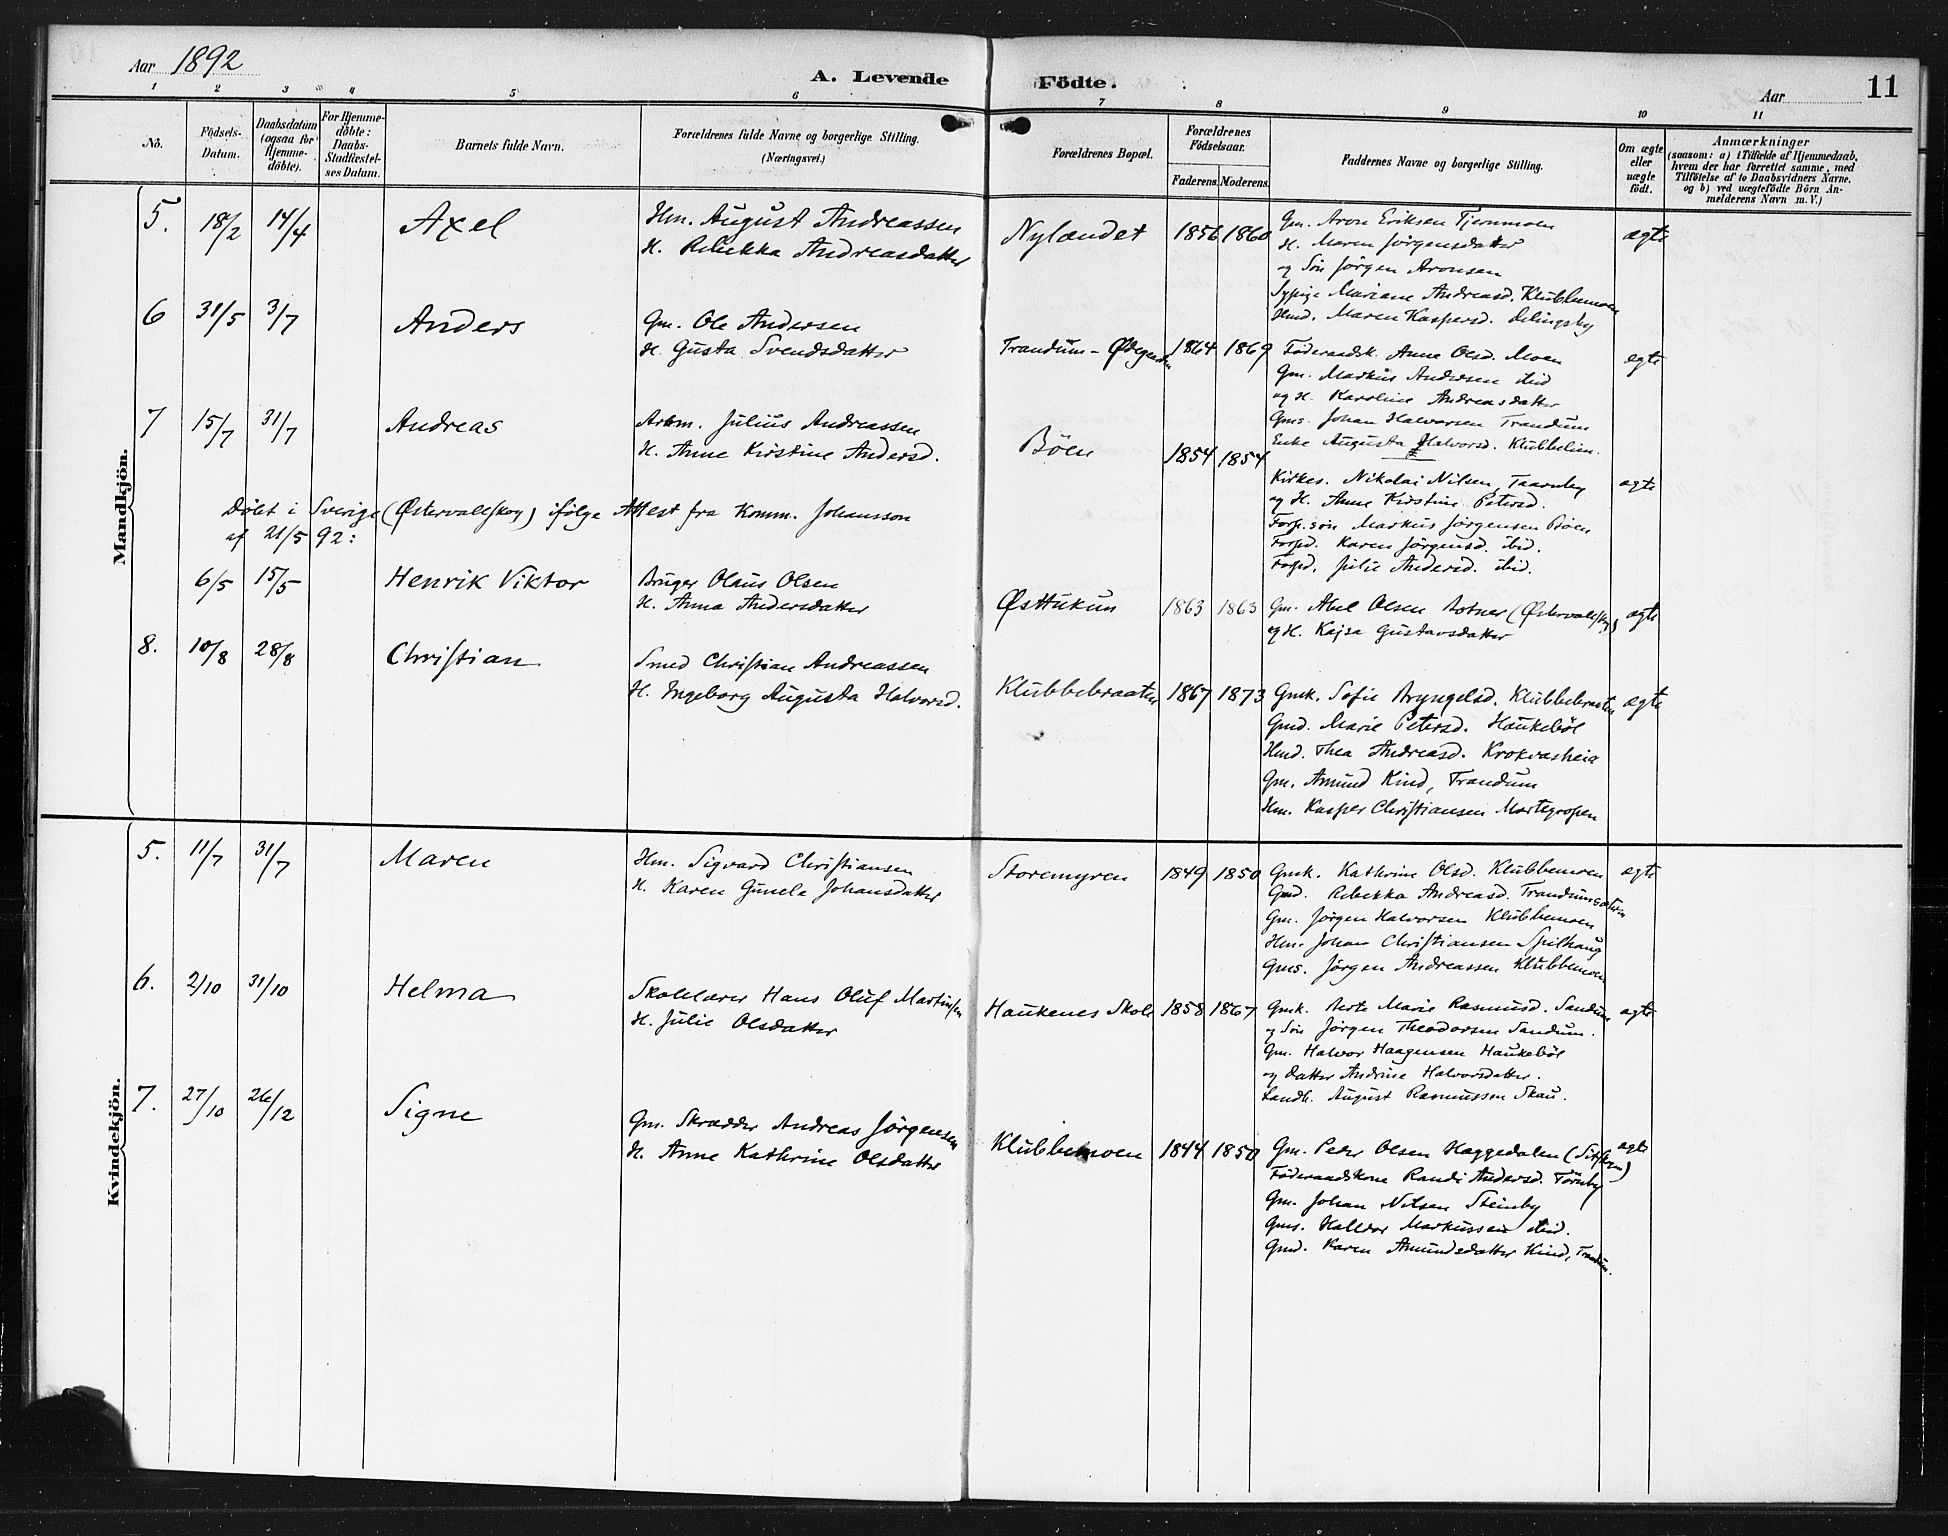 Aar 1892
A. Levende Födte.
Aar
11
1 2 3 4 5 6 7 8 9 10 11
No.
Födsels-Datum.
Daabsdatum (ogsaa for Hjemme-döbte).
For Hjemme-döbte: Daabs-Stadfæstel-ses Datum.
Barnets fulde Navn.
Forældrenes fulde Navne og borgerlige Stilling.
(Næringsvei.)
Forældrenes Bopæl.
Forældrenes Födselsaar.
Faderens. Moderens.
Faddernes Navne og borgerlige Stilling.
Om ægte eller uægte födt.
Anmærkninger
(saasom: a) i Tilfælde af Hjemmedaab,
hvem der har forrettet samme, med
Tilföielse af to Daabsvidners Navne.
og b) ved uægtefödte Börn An-
melderens Navn m. V.)
Mandkjön.
5. 18/2 14/4 Axel
Hm. August Andreassen
H. Rebekka Andreasdatter
Nylændet 1856 1860
Gm. Aron Eriksen Tjernmoen
H. Maren Jörgensdatter
og Sön Jörgen Aronsen
Sypige Mariane Andreasd. Klubbemoen
Hmd. Maren Kaspersd.
ægte
6 31/5 3/7 Anders
Gm. Ole Andersen
H. Gusta Svendsdatter
Trandum - 1864 1869
Föderaadsk. Anne Olsd. Moen
Gm. Markus Andersen ibid
og H. Karoline Andreasdatter
Gms. Johan Halvorsen Trandum
Enke Augusta Halvorsd. Klubbelien.
ægte
7 15/7 31/7 Andreas
Arbm. Julius Andreassen
H. Anne Kirstine Andersd.
Böen 1854 1854
Kirkes. Nikolai Nilsen, Taarnby
og H. Anne Kirstine Petersd.
Forp. sön Markus Jörgensen Böen
Forpd. Karen Jörgensd. ibid.
Forpd. Julie Andersd. ibid.
ægte
Döbt i Sverige (Östervallskog) ifölge Attest fra Komm. Johansson
af 21/5 92:
6/5 15/5 Henrik Viktor
Bruger Olaus Olsen
H. Anna Andersdatter
Östtukun 1863 1863
Gm. Abel Olsen Botner (Östervallskog)
og H. Kajsa Gustavsdatter
ægte
8. 10/8 28/8 Christian
Smed Christian Andreassen
H. Ingeborg Augusta Halvorsd.
Klubbebraaten 1867 1873
Gmk. Sofie Bryngelsd. Klubbebraaten
Gmd. Marie Petersd. Haukeböl
Hmd. Thea Andreasd. Krokvasheia
Gm. Amund Kind, Trandum
Hm. Kasper Christiansen Martegropen
ægte
Kvindekjön.
5. 11/7 31/7 Maren
Hm. Sigvard Christiansen
H. Karen Gunele Johansdatter
Storemyren 1849 1850
Gmk. Kathrine Olsd. Klubbemoen
Gmd. Rebekka Andreasd. Trandumsæteren
Gm. Jörgen Halvorsen Klubbemoen
Hm. Johan Christiansen Spilhaug
Gms. Jörgen Andreassen Klubbemoen
ægte
6. 2/10 31/10 Helma
Skolelærer Hans Oluf Martinsen
H. Julie Olsdatter
Haukenes Skole 1858 1867
Gmk. Berte Marie Rasmusd. Sandum
og Sön Jörgen Theodorsen Sandum.
Gm. Halvor Haagensen Haukeböl
og datter Andrine Halvorsdatter.
Landh. August Rasmussen Skau.
ægte
7. 27/10 26/12 Signe
Gm. Skrædder Andreas Jörgensen
H. Anne Kathrine Olsdatter
Klubbemoen 1844 1850
Gm. Peder Olsen Haggedalen
Föderaadskone Randi Andersd. Törnby
Gm. Johan Nilsen Steinby
Gms. Halvor Markussen ibid.
Gmd. Karen Amundsdatter Kind, Trandum.
ægte